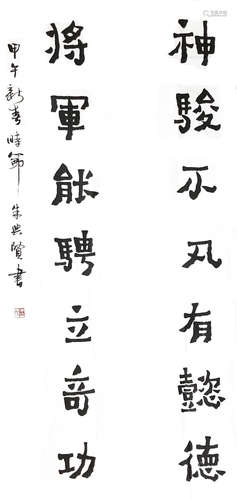 神駿不凡有懿德
將軍能騁立奇功
甲午新春時節朱興賢書